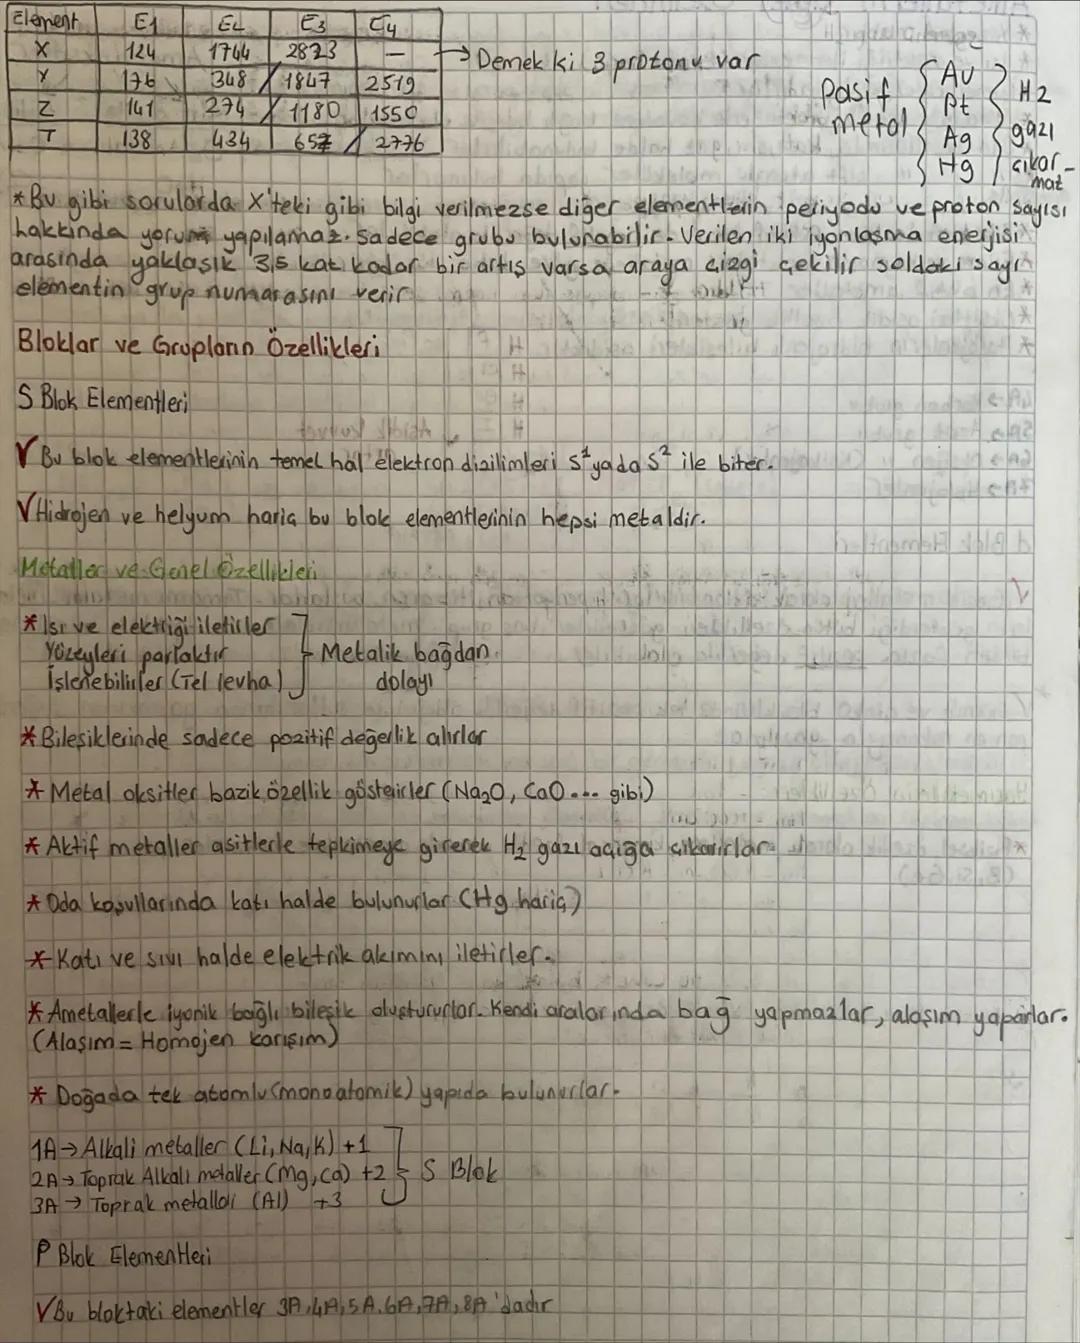 Element E1 E2 E3 E4
X 124 1744 2823 — → Demek ki 3 protonu var
Y 176 348 / 1847 2519
Z 141 274 / 1180 1550
T 138 434 657 / 2776
Pasif metal { Au Pt Ag Hg } H2 gazı çıkarmaz
*Bu gibi sorularda X'teki gibi bilgi verilmezse diğer elementlerin periyodu ve proton sayısı
hakkında yorum yapılamaz. Sadece grubu bulunabilir. Verilen iki iyonlaşma enerjisi
arasında yaklaşık 3,5 kat kadar bir artış varsa araya çizgi çekilir soldaki sayı
elementin grup numarasını verir
Bloklar ve Grupların Özellikleri
S Blok Elementleri
√ Bu blok elementlerinin temel hal elektron dizilimleri s¹ yada s² ile biter.
√ Hidrojen ve helyum hariç bu blok elementlerinin hepsi metaldir.
Metaller ve Genel Özellikleri
* Isı ve elektriği iletirler
Yüzeyleri parlaktır
İşlenebilirler (Tel levha)
} Metalik bağdan
dolayı
* Bileşiklerinde sadece pozitif değerlik alırlar
* Metal oksitler bazik özellik gösterirler (Na₂O, CaO... gibi)
* Aktif metaller asitlerle tepkimeye girerek H₂ gazı açığa çıkarırlar
* Oda koşullarında katı halde bulunurlar (Hg hariç)
* Katı ve sıvı halde elektrik akımını iletirler.
* Ametallerle iyonik bağlı bileşik oluştururlar. Kendi aralarında bağ yapmazlar, alaşım yaparlar.
(Alaşım = Homojen karışım)
* Doğada tek atomlu (monoatomik) yapıda bulunurlar.
1A → Alkali metaller (Li, Na, K) +1
2A → Toprak Alkali metaller (Mg, Ca) +2 } S Blok
3A → Toprak metalleri (Al) +3
P Blok Elementleri
√ Bu bloktaki elementler 3A, 4A, 5A, 6A, 7A, 8A'dadır